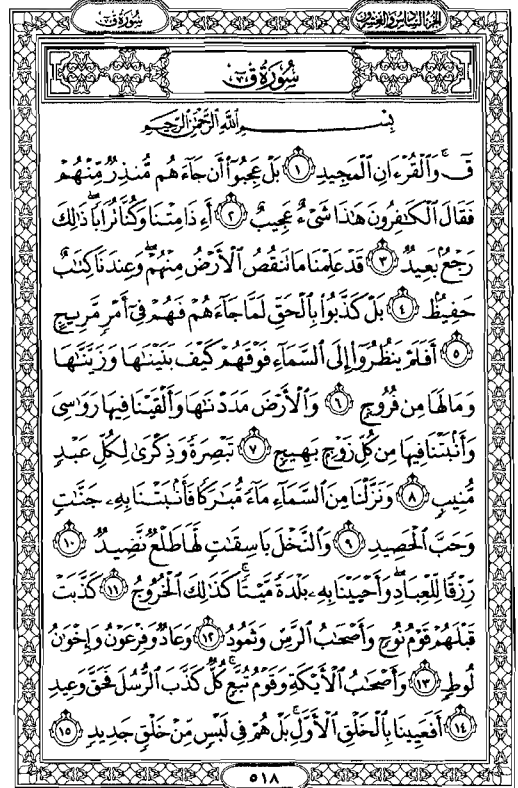 سُورَةُ ق
الجزء السادس والعشرون
سُورَةُ ق
بِسْمِ اللَّهِ الرَّحْمَٰنِ الرَّحِيمِ
قٓ ۚ وَٱلْقُرْءَانِ ٱلْمَجِيدِ ١ بَلْ عَجِبُوٓا۟ أَن جَآءَهُم مُّنذِرٌ مِّنْهُمْ
فَقَالَ ٱلْكَٰفِرُونَ هَٰذَا شَىْءٌ عَجِيبٌ ٢ أَءِذَا مِتْنَا وَكُنَّا تُرَابًا ۖ ذَٰلِكَ
رَجْعٌۢ بَعِيدٌ ٣ قَدْ عَلِمْنَا مَا تَنقُصُ ٱلْأَرْضُ مِنْهُمْ ۖ وَعِندَنَا كِتَٰبٌ
حَفِيظٌۢ ٤ بَلْ كَذَّبُوا۟ بِٱلْحَقِّ لَمَّا جَآءَهُمْ فَهُمْ فِىٓ أَمْرٍ مَّرِيجٍ
٥ أَفَلَمْ يَنظُرُوٓا۟ إِلَى ٱلسَّمَآءِ فَوْقَهُمْ كَيْفَ بَنَيْنَٰهَا وَزَيَّنَّٰهَا
وَمَا لَهَا مِن فُرُوجٍ ٦ وَٱلْأَرْضَ مَدَدْنَٰهَا وَأَلْقَيْنَا فِيهَا رَوَٰسِىَ
وَأَنۢبَتْنَا فِيهَا مِن كُلِّ زَوْجٍۭ بَهِيجٍ ٧ تَبْصِرَةً وَذِكْرَىٰ لِكُلِّ عَبْدٍ
مُّنِيبٍ ٨ وَنَزَّلْنَا مِنَ ٱلسَّمَآءِ مَآءً مُّبَٰرَكًا فَأَنۢبَتْنَا بِهِۦ جَنَّٰتٍ
وَحَبَّ ٱلْحَصِيدِ ٩ وَٱلنَّخْلَ بَاسِقَٰتٍ لَّهَا طَلْعٌ نَّضِيدٌ ١٠
رِّزْقًا لِّلْعِبَادِ ۖ وَأَحْيَيْنَا بِهِۦ بَلْدَةً مَّيْتًا ۚ كَذَٰلِكَ ٱلْخُرُوجُ ١١ كَذَّبَتْ
قَبْلَهُمْ قَوْمُ نُوحٍ وَأَصْحَٰبُ ٱلرَّسِّ وَثَمُودُ ١٢ وَعَادٌ وَفِرْعَوْنُ وَإِخْوَٰنُ
لُوطٍ ١٣ وَأَصْحَٰبُ ٱلْأَيْكَةِ وَقَوْمُ تُبَّعٍ ۚ كُلٌّ كَذَّبَ ٱلرُّسُلَ فَحَقَّ وَعِيدِ
١٤ أَفَعَيِينَا بِٱلْخَلْقِ ٱلْأَوَّلِ ۚ بَلْ هُمْ فِى لَبْسٍ مِّنْ خَلْقٍ جَدِيدٍ ١٥
٥١٨